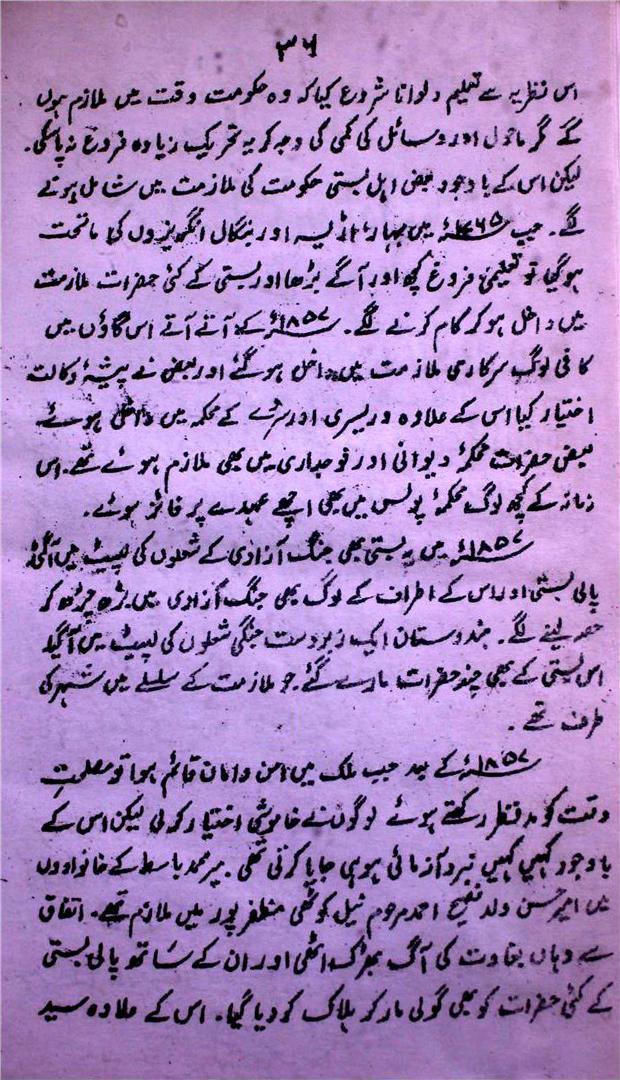 ۳۶
اس نظریہ سے تعلیم دلوانا شروع کیا کہ وہ حکومت وقت میں ملازم ہوں
گے گر ماحول اور وسائل کی کمی کی وجہ کر یہ تحریک زیادہ فروغ نہ پاسکی۔
لیکن اس کے باوجود بعض اہل بستی حکومت کی ملازمت میں شامل ہونے
لگے۔ جب ۱۷۶۵ء میں بہار، اڑیسہ اور بنگال انگریزوں کی ماتحت
ہوگیا تو تعلیمی فروغ کچھ اور آگے بڑھا اور بستی کے کئی حضرات ملازمت
میں داخل ہو کر کام کرنے لگے۔ ۱۸۵۷ء کے آتے آتے اس گاؤں میں
کافی لوگ سرکاری ملازمت میں داخل ہوگئے اور بعض نے پیشۂ وکالت
اختیار کیا اس کے علاوہ ور یسری اور سڑے کے محکمہ میں داخل ہوئے
بعض حضرات محکمۂ دیوانی اور فوجداری میں بھی ملازم ہوئے تھے۔ اس
زمانہ کے کچھ لوگ محکمۂ پولس میں بھی اچھے عہدے پر فائز ہوئے۔
۱۸۵۷ء میں یہ بستی بھی جنگ آزادی کے شعلوں کی لپیٹ میں آگئی
پالی بستی اور اس کے اطراف کے لوگ بھی جنگ آزادی میں بڑھ چڑھ کر
حصہ لینے لگے۔ ہندوستان ایک زبردست جنگی شعلوں کی لپیٹ میں آگیا۔
اس بستی کے بھی چند حضرات مارے گئے۔ جو ملازمت کے سلسلے میں شہر کی
طرف تھے۔
۱۸۵۷ء کے بعد جب ملک میں امن و امان قائم ہوا تو مصلحتِ
وقت کو مدنظر رکھتے ہوئے لوگوں نے خاموشی اختیار کرلی لیکن اس کے
باوجود کہیں کہیں نبرد آزمائی ہو ہی جایا کرتی تھی۔ میر محمد باسط کے خانوادوں
میں امیر حسن ولد فصیح احمد مرحوم نیل کوٹھی مظفر پور میں ملازم تھے۔ اتفاق
سے وہاں بغاوت کی آگ بھڑک اٹھی اور ان کے ساتھ پالی بستی
کے کئی حضرات کو بھی گولی مار کر ہلاک کر دیا گیا۔ اس کے علاوہ سید